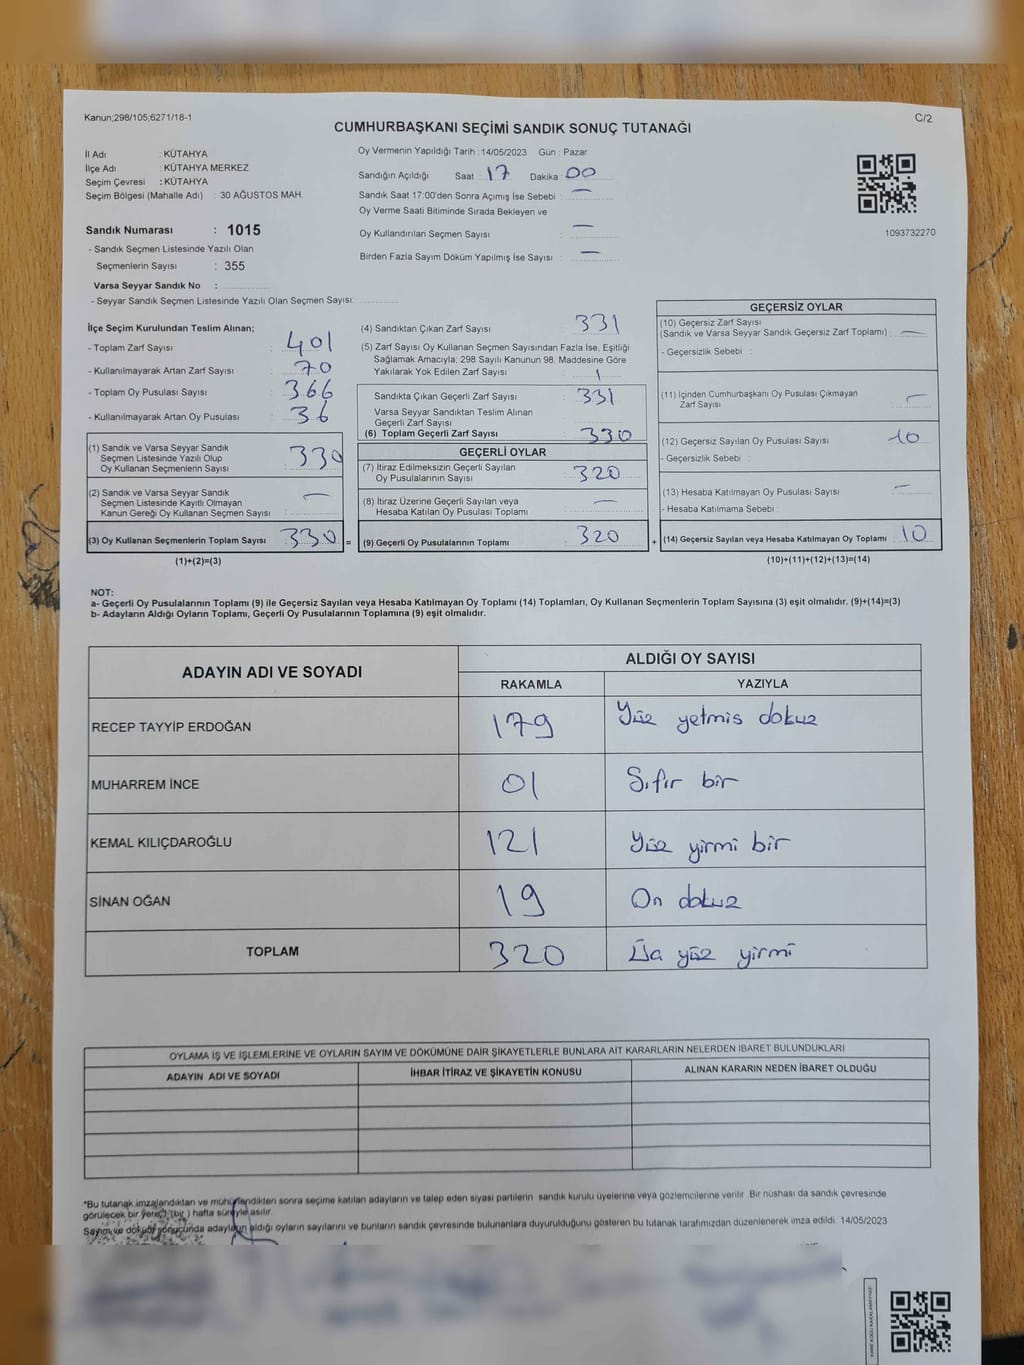 Kanun;298/105;6271/18-1
C/2
CUMHURBAŞKANI SEÇİMİ SANDIK SONUÇ TUTANAĞI
İl Adı : KÜTAHYA
İlçe Adı : KÜTAHYA MERKEZ
Seçim Çevresi : KÜTAHYA
Seçim Bölgesi (Mahalle Adı) : 30 AĞUSTOS MAH.
Sandık Numarası : 1015
- Sandık Seçmen Listesinde Yazılı Olan
Seçmenlerin Sayısı : 355
Varsa Seyyar Sandık No :
- Seyyar Sandık Seçmen Listesinde Yazılı Olan Seçmen Sayısı:
Oy Vermenin Yapıldığı Tarih : 14/05/2023 Gün : Pazar
Sandığın Açıldığı Saat : 17 Dakika : 00
Sandık Saat 17:00'den Sonra Açımış İse Sebebi : —
Oy Verme Saati Bitiminde Sırada Bekleyen ve
Oy Kullandırılan Seçmen Sayısı : —
Birden Fazla Sayım Döküm Yapılmış İse Sayısı : —
1093732270
İlçe Seçim Kurulundan Teslim Alınan;
- Toplam Zarf Sayısı : 401
- Kullanılmayarak Artan Zarf Sayısı : 70
- Toplam Oy Pusulası Sayısı : 366
- Kullanılmayarak Artan Oy Pusulası : 36
(1) Sandık ve Varsa Seyyar Sandık
Seçmen Listesinde Yazılı Olup
Oy Kullanan Seçmenlerin Sayısı : 330
(2) Sandık ve Varsa Seyyar Sandık
Seçmen Listesinde Kayıtlı Olmayan
Kanun Gereği Oy Kullanan Seçmen Sayısı : —
(3) Oy Kullanan Seçmenlerin Toplam Sayısı : 330 =
(1)+(2)=(3)
(4) Sandıktan Çıkan Zarf Sayısı : 331
(5) Zarf Sayısı Oy Kullanan Seçmen Sayısından Fazla İse, Eşitliği
Sağlamak Amacıyla; 298 Sayılı Kanunun 98. Maddesine Göre
Yakılarak Yok Edilen Zarf Sayısı : 1
Sandıkta Çıkan Geçerli Zarf Sayısı : 331
Varsa Seyyar Sandıktan Teslim Alınan
Geçerli Zarf Sayısı :
(6) Toplam Geçerli Zarf Sayısı : 330
GEÇERLİ OYLAR
(7) İtiraz Edilmeksizin Geçerli Sayılan
Oy Pusulalarının Sayısı : 320
(8) İtiraz Üzerine Geçerli Sayılan veya
Hesaba Katılan Oy Pusulası Toplamı : —
(9) Geçerli Oy Pusulalarının Toplamı : 320 +
GEÇERSİZ OYLAR
(10) Geçersiz Zarf Sayısı
(Sandık ve Varsa Seyyar Sandık Geçersiz Zarf Toplamı) : —
- Geçersizlik Sebebi :
(11) İçinden Cumhurbaşkanı Oy Pusulası Çıkmayan
Zarf Sayısı : —
(12) Geçersiz Sayılan Oy Pusulası Sayısı : 10
- Geçersizlik Sebebi :
(13) Hesaba Katılmayan Oy Pusulası Sayısı : —
- Hesaba Katılmama Sebebi :
(14) Geçersiz Sayılan veya Hesaba Katılmayan Oy Toplamı : 10
(10)+(11)+(12)+(13)=(14)
NOT:
a- Geçerli Oy Pusulalarının Toplamı (9) ile Geçersiz Sayılan veya Hesaba Katılmayan Oy Toplamı (14) Toplamları, Oy Kullanan Seçmenlerin Toplam Sayısına (3) eşit olmalıdır. (9)+(14)=(3)
b- Adayların Aldığı Oyların Toplamı, Geçerli Oy Pusulalarının Toplamına (9) eşit olmalıdır.
ADAYIN ADI VE SOYADI
ALDIĞI OY SAYISI
RAKAMLA YAZIYLA
RECEP TAYYİP ERDOĞAN 179 Yüz yetmis dokuz
MUHARREM İNCE 01 Sıfır bir
KEMAL KILIÇDAROĞLU 121 Yüz yirmi bir
SİNAN OĞAN 19 On dokuz
TOPLAM 320 Üç yüz yirmi
OYLAMA İŞ VE İŞLEMLERİNE VE OYLARIN SAYIM VE DÖKÜMÜNE DAİR ŞİKAYETLERLE BUNLARA AİT KARARLARIN NELERDEN İBARET BULUNDUKLARI
ADAYIN ADI VE SOYADI İHBAR İTİRAZ VE ŞİKAYETİN KONUSU ALINAN KARARIN NEDEN İBARET OLDUĞU
*Bu tutanak imzalandıktan ve mühürlendikten sonra seçime katılan adayların ve talep eden siyasi partilerin sandık kurulu üyelerine veya gözlemcilerine verilir. Bir nüshası da sandık çevresinde
görülecek bir yere, (bir) hafta süreyle asılır.
Sayım ve döküm sonucunda adayların aldığı oyların sayılarını ve bunların sandık çevresinde bulunanlara duyurulduğunu gösteren bu tutanak tarafımızdan düzenlenerek imza edildi. 14/05/2023